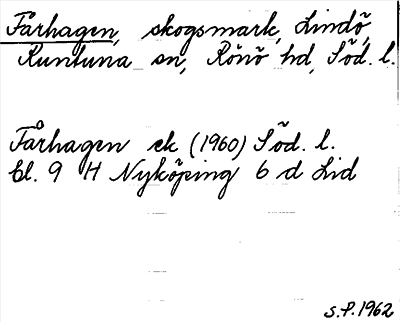 Fårhagen, skogsmark, Lindö,
Runtuna sn, Rönö hd, Söd. l.
Fårhagen ek (1960) Söd. l.
bl. 9 H Nyköping 6 d Lid
S.P. 1962